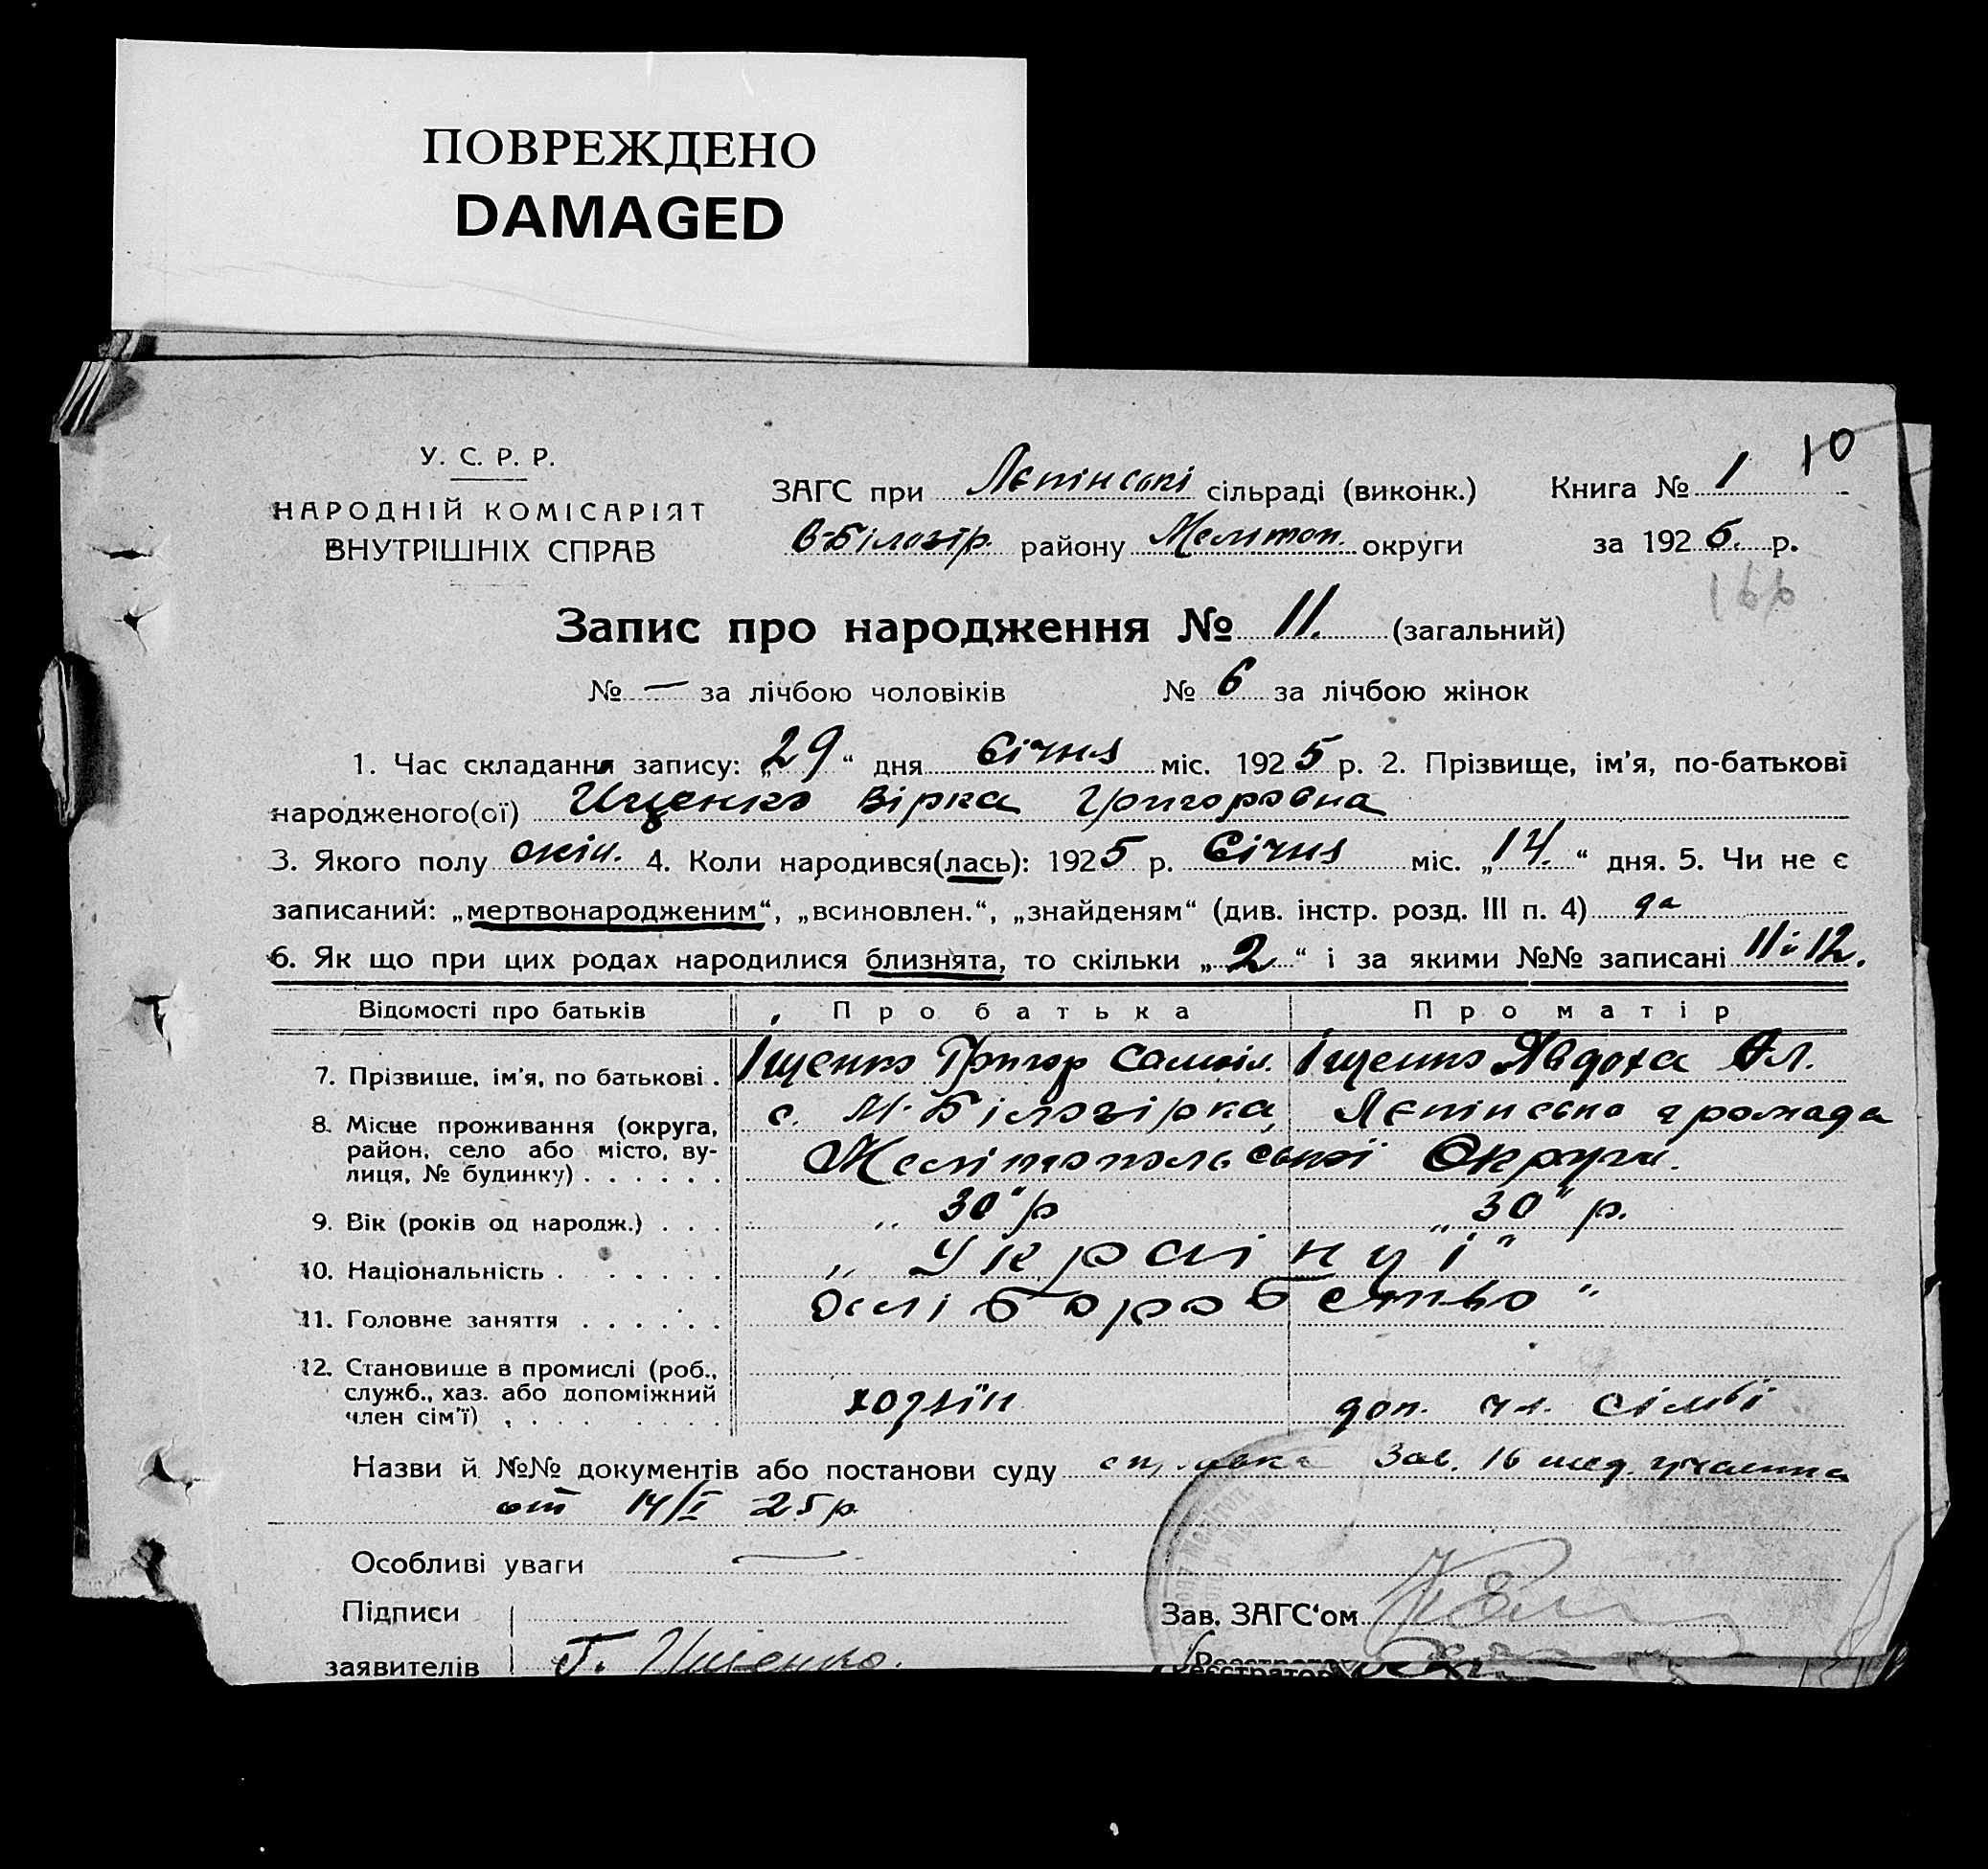 ПОВРЕЖДЕНО
DAMAGED
10
У. С. Р. Р.
НАРОДНІЙ КОМІСАРІЯТ
ВНУТРІШНІХ СПРАВ
ЗАГС при Лєпінські сільраді (виконк.)
В-Білозір. району Мелітоп. округи
Книга № 1
за 1925. р.
166
Запис про народження № 11. (загальний)
№ — за лічбою чоловіків № 6 за лічбою жінок
1. Час складання запису: „29“ дня Січня міс. 1925 р. 2. Прізвище, ім'я, по-батькові
народженого(ої) Ищенко Вірка Григоровна
3. Якого полу жін. 4. Коли народився(лась): 1925 р. Січня міс. „14.“ дня. 5. Чи не є
записаний: „мертвонародженим“, „всиновлен.“, „знайденям“ (див. інстр. розд. III п. 4) да
6. Як що при цих родах народилися близнята, то скільки „2“ і за якими №№ записані 11 і 12.
Відомості про батьків Про батька Про матір
7. Прізвище, ім'я, по батькові . Іщенко Григор Самоіл. Іщенко Явдоха Ял.
8. Місце проживання (округа, район, село або місто, вулиця, № будинку) . . . . . . с. М. Білозірка, Лєпінсько громада
Мелітопольської Округи.
9. Вік (років од народж.) . . . „ 30" р „ 30" р.
10. Національність . . . . . . „ Україн ці "
11. Головне заняття . . . . . . хліборобство "
12. Становище в промислі (роб.,
служб., хаз. або допоміжний
член сім'ї) . . . . хозяїн доп. чл. сімьі
Назви й №№ документів або постанови суду справка Зав. 16 мед. участка
от 14/I 25 р.
Особливі уваги —
Підписи
заявителів Г. Ищенко.
Зав. ЗАГС'ом
Реєстратор